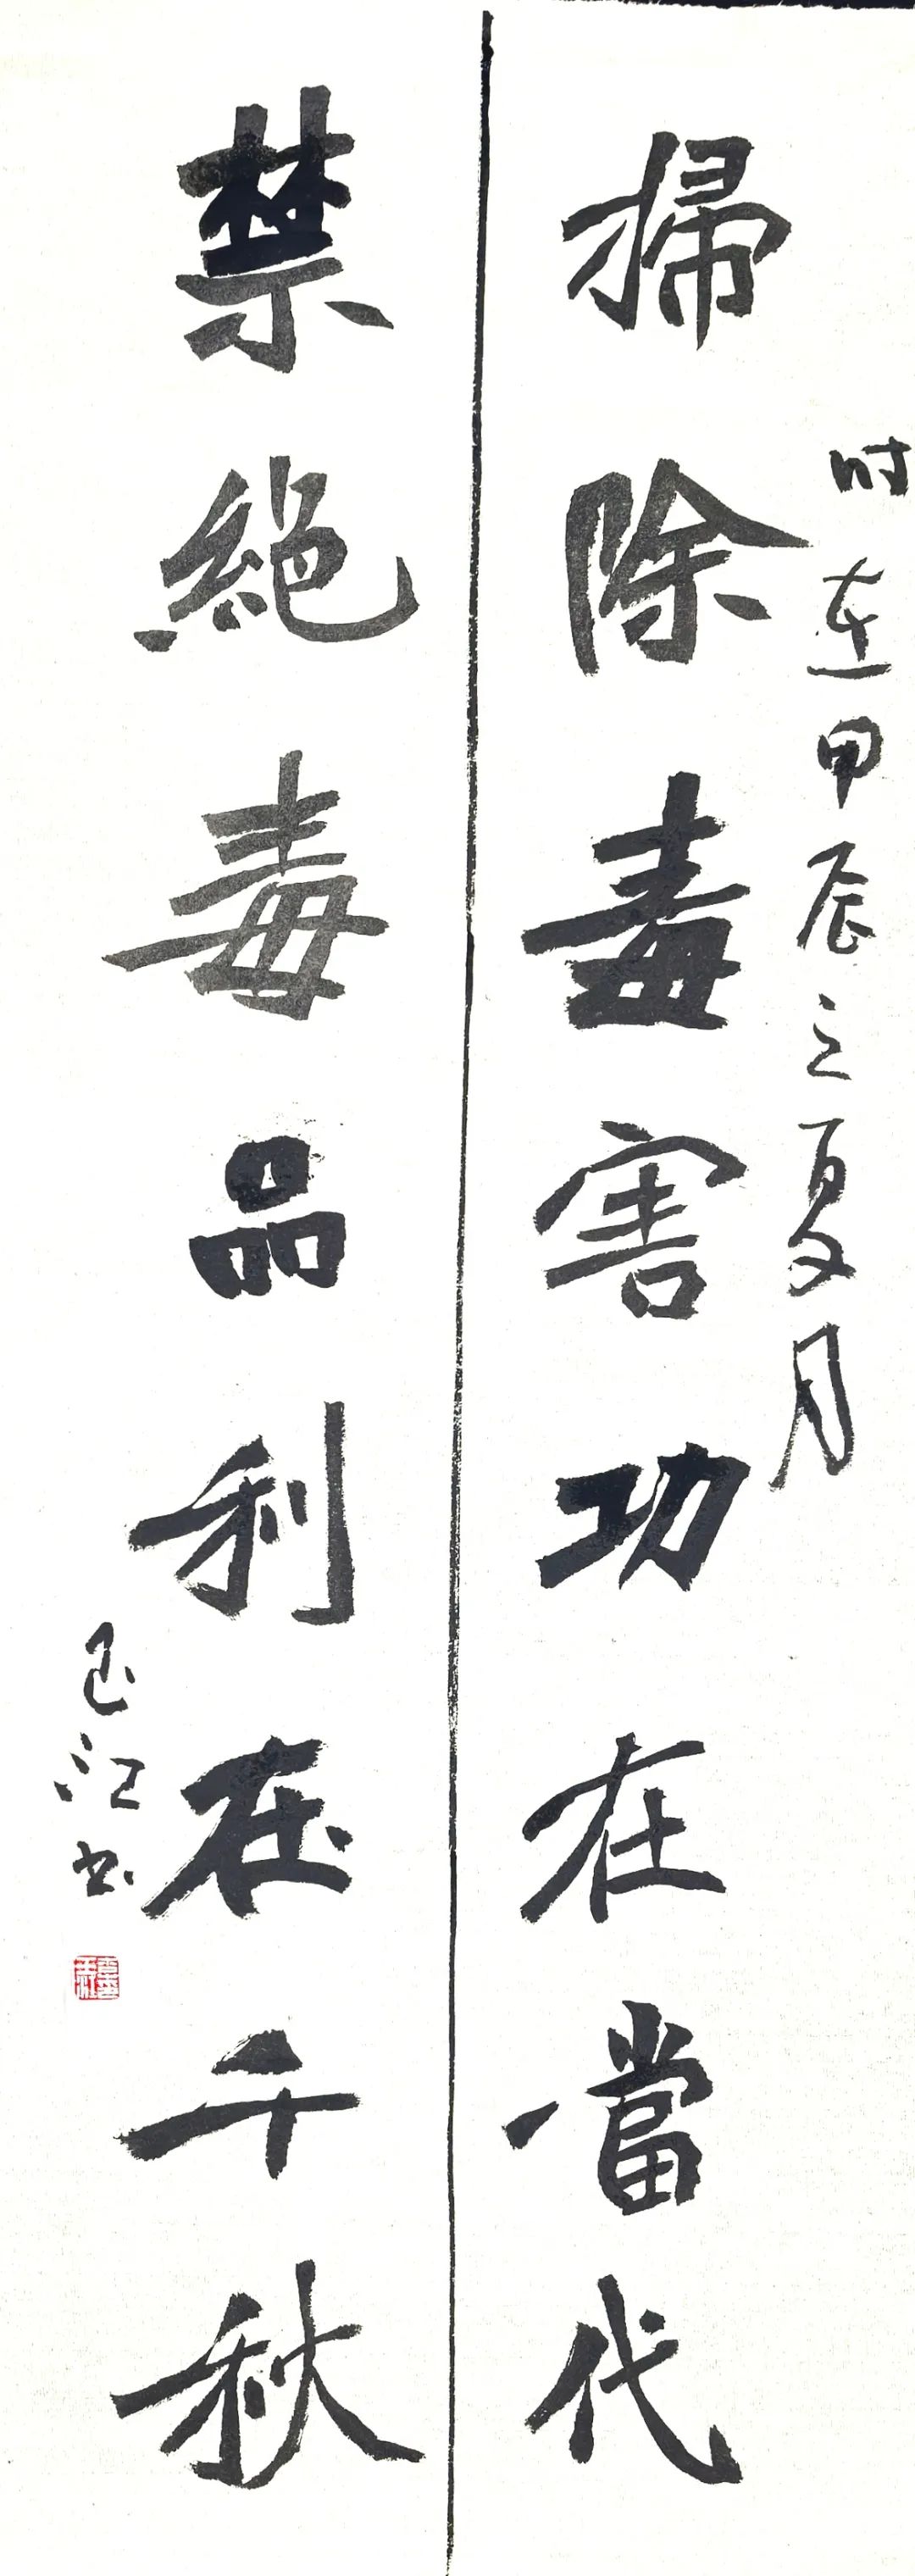 時在甲辰之夏月
掃除毒害功在當代
禁絕毒品利在千秋
玉江书